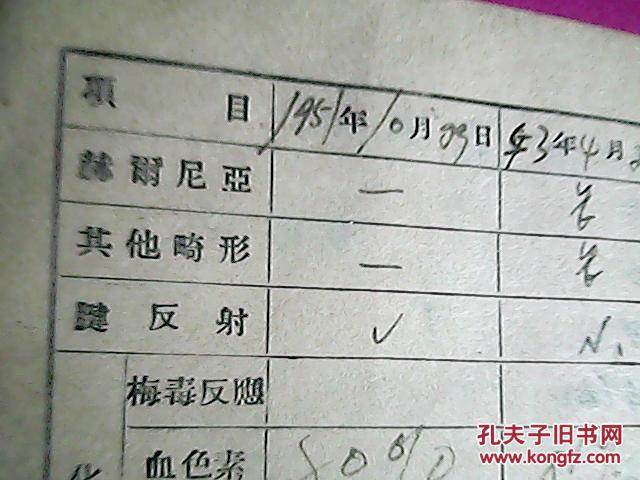 項目 1951年10月29日 53年4月
赫爾尼亞 — 无
其他畸形 — 无
腱反射 ✓ N.
梅毒反應
血色素 80%
化
孔夫子旧书网
www.kongfz.com